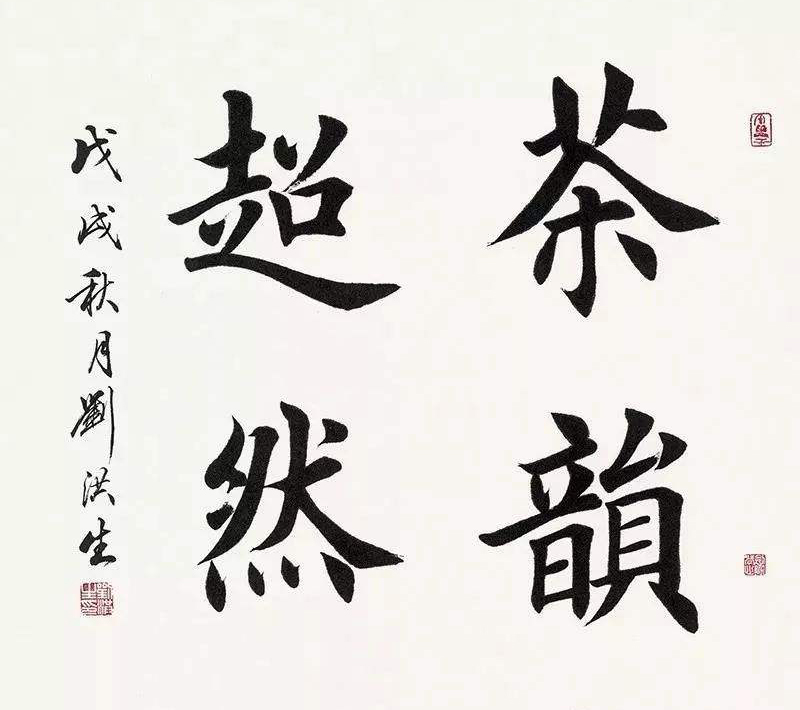 茶韻
超然
戊戌秋月劉洪生